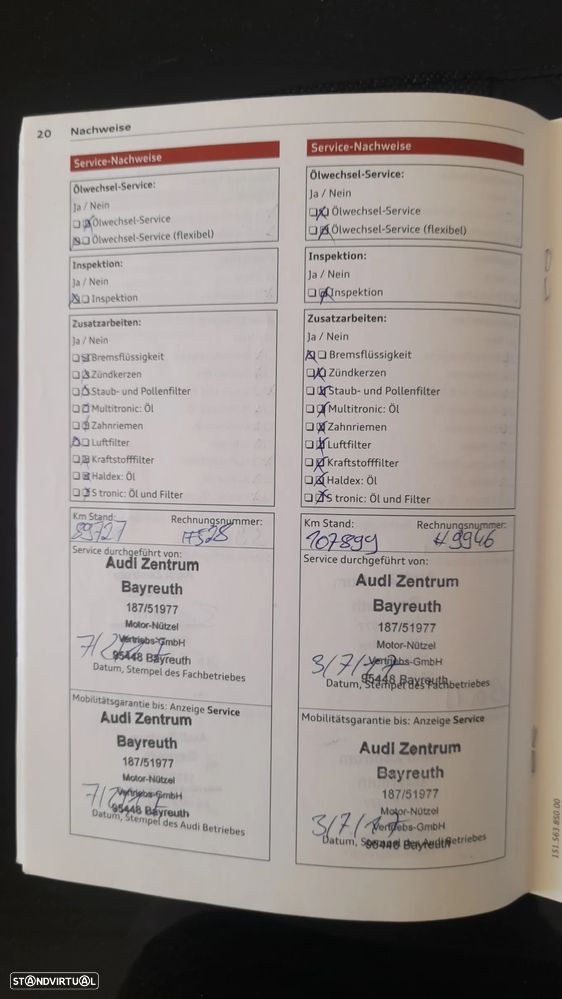 20 Nachweise
Service-Nachweise
Ölwechsel-Service:
Ja / Nein
Ölwechsel-Service
Ölwechsel-Service (flexibel)
Inspektion:
Ja / Nein
Inspektion
Zusatzarbeiten:
Ja / Nein
Bremsflüssigkeit
Zündkerzen
Staub- und Pollenfilter
Multitronic: Öl
Zahnriemen
Luftfilter
Kraftstofffilter
Haldex: Öl
S tronic: Öl und Filter
Km Stand: Rechnungsnummer:
89727
Service durchgeführt von:
Audi Zentrum
Bayreuth
187/51977
Motor-Nützel
Vertriebs-GmbH
95448 Bayreuth
Datum, Stempel des Fachbetriebes
Mobilitätsgarantie bis: Anzeige Service
Audi Zentrum
Bayreuth
187/51977
Motor-Nützel
Vertriebs-GmbH
95448 Bayreuth
Datum, Stempel des Audi Betriebes
Service-Nachweise
Ölwechsel-Service:
Ja / Nein
Ölwechsel-Service
Ölwechsel-Service (flexibel)
Inspektion:
Ja / Nein
Inspektion
Zusatzarbeiten:
Ja / Nein
Bremsflüssigkeit
Zündkerzen
Staub- und Pollenfilter
Multitronic: Öl
Zahnriemen
Luftfilter
Kraftstofffilter
Haldex: Öl
S tronic: Öl und Filter
Km Stand: Rechnungsnummer:
107899
Service durchgeführt von:
Audi Zentrum
Bayreuth
187/51977
Motor-Nützel
Vertriebs-GmbH
3/7/17
95448 Bayreuth
Datum, Stempel des Fachbetriebes
Mobilitätsgarantie bis: Anzeige Service
Audi Zentrum
Bayreuth
187/51977
Motor-Nützel
Vertriebs-GmbH
3/7/17
95448 Bayreuth
Datum, Stempel des Audi Betriebes
151.563.850.00
STANDVIRTUAL